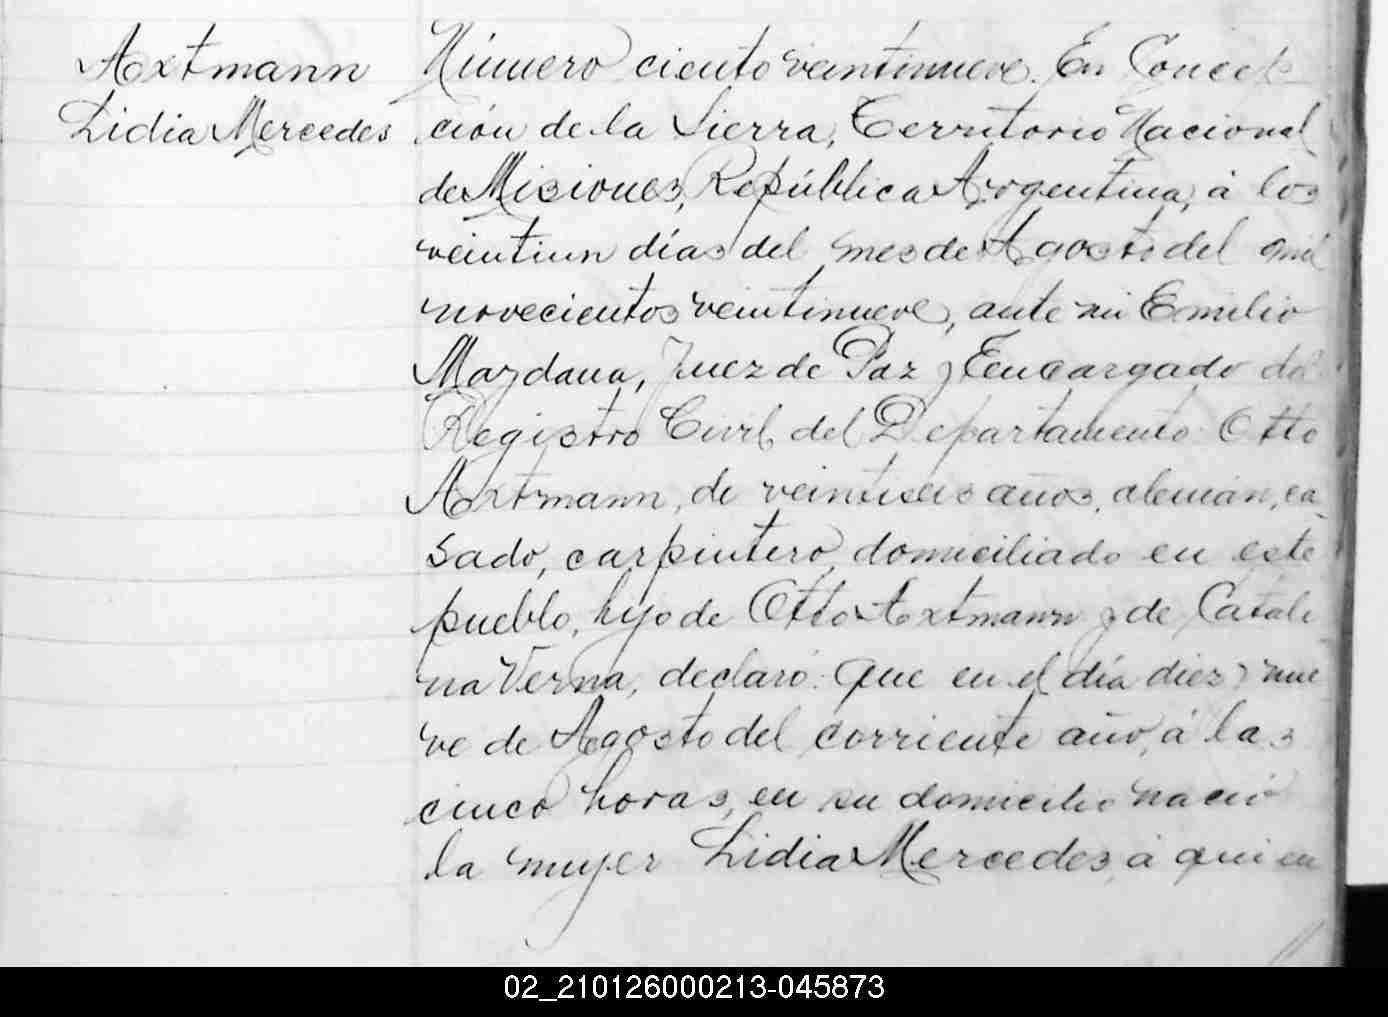 Axtmann
Lidia Mercedes
Número ciento veintinueve. En Concep
ción de la Sierra, Territorio Nacional
de Misiones, República Argentina, á los
veintiun días del mes de Agosto del mil
novecientos veintinueve, ante mi Emilio
Maydana, Juez de Paz y Encargado del
Registro Civil del Departamento Otto
Axtmann, de veintiseis años, alemán, ca
sado, carpintero, domiciliado en este
pueblo, hijo de Otto Axtmann y de Catali
na Verna, declaró: Que en el día diez y nue
ve de Agosto del corriente año, á las
cinco horas, en su domicilio nació
la mujer Lidia Mercedes, á quien
02_210126000213-045873